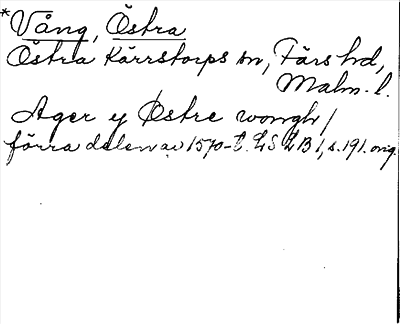 *Vång, Östra
Östra Kärrstorps sn, Färs hd,
Malm. l.
Ager y Østre wongh/
förra delen av 1570-t. LSLB 1, s. 191. orig.